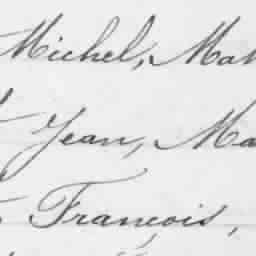 Michel, Mat
Jean, Ma
François,